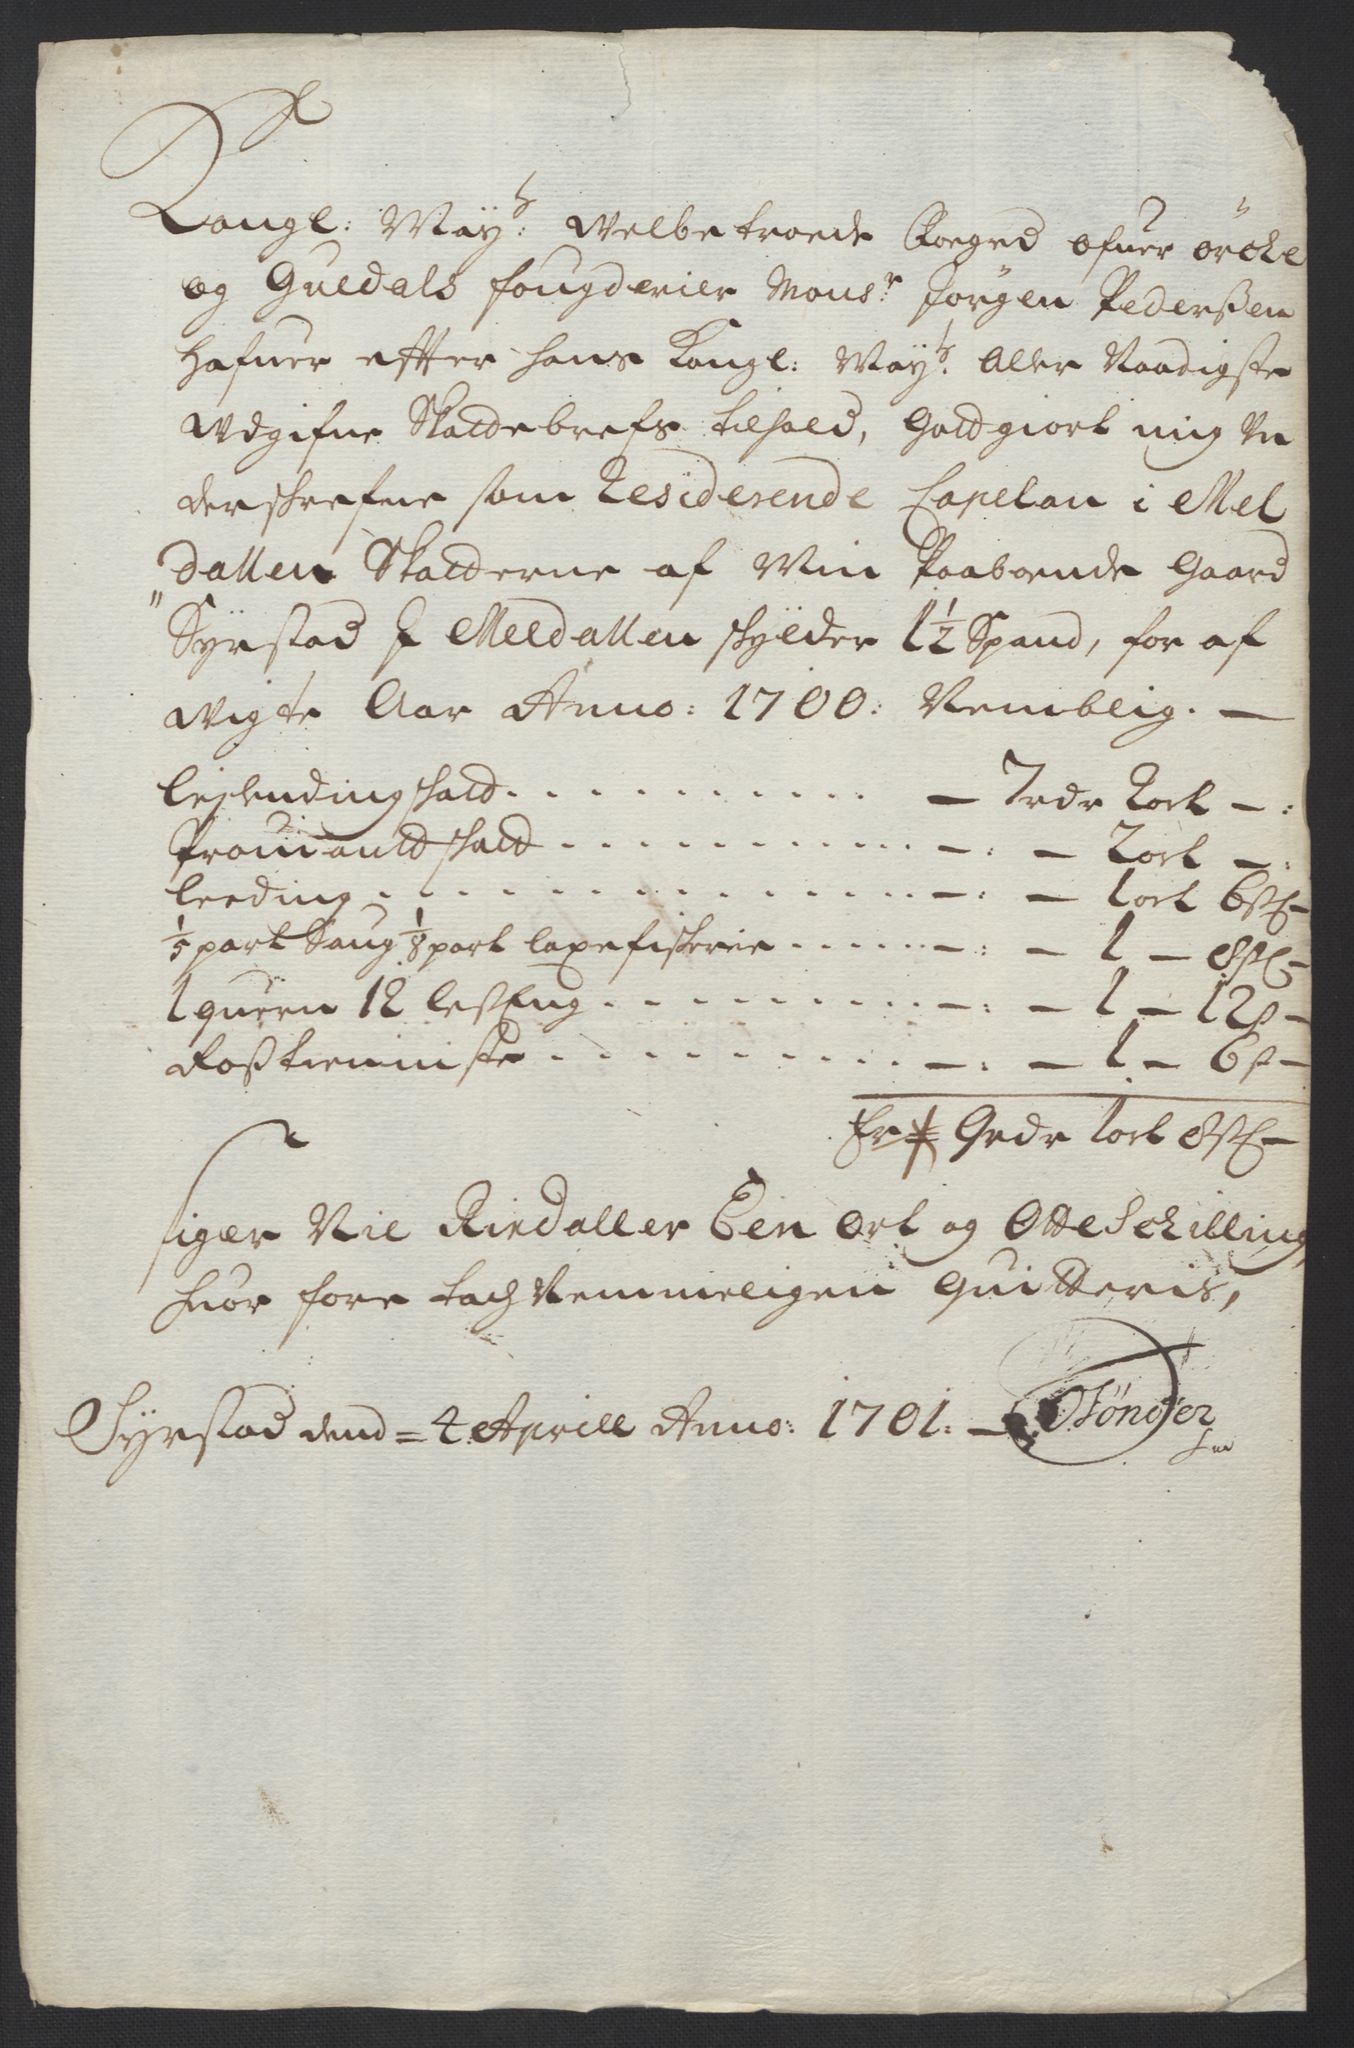 Kongl: May:ts Welbetroede Foeged ofuer Örckel
og Guldals fougderier Mons:r Jörgen Pederßen
hafuer efter hans Kongl: May:ts Aller Naadigste
Udgifne Skatdebrefs tilhold, Gotdgiort mig Un
derskrefne som Residerende Capelan i Mel
dallen Skatderne af Min Paaboende Gaard
"Syrstad J Meldallen skylder 1½ Spand, for af
Wigte Aar Anno: 1700: Nemblig. —
leylendingskatd . . . . . . . . . . . — 7rdr 2ort — :
Prowiantdskatd . . . . . . . . . . . — : — 2ort — :
leeding . . . . . . . . . . . . . . — : — 1ort 6sk —
1/5 part Saug 1/8 part laxefiskerie . . . . . — : — 1 — 8sk —
1 quern 12 leß Eng . . . . . . . . . — : — 1 — 12s —
Roßtienniste . . . . . . . . . . . — : — 1 — 6s —
Er 9rdr 1ort 8sk —
siger Nie Rixdaller Een Ort og Otte Schilling,
huor fore tachnemmeligen Quitteris,
Syrstad dend = 4 Aprill Anno: 1701: — O Tönder